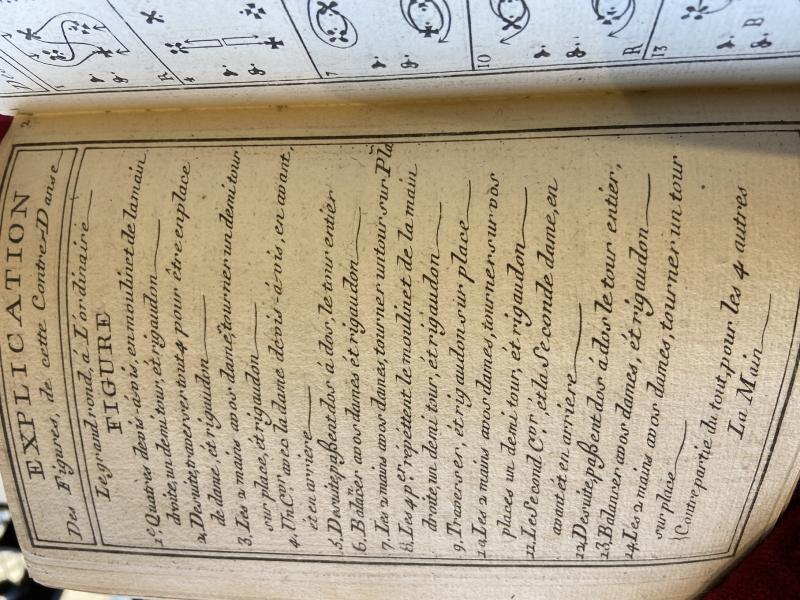 2
EXPLICATION
Des Figures, de cette Contre-Danse
Le grand rond, á L'ordinaire
FIGURE
1.e Quatrés de vis-á-vis, en moulinet de la main
droite, un demi tour, et rigaudon
2. De suite, traverser tout 4 pour être en place
de dame, et rigaudon
3. Les 2 mains a vos dame, tourner un demi tour
sur place, et rigaudon
4. Un C.er avec la dame de vis-á-vis, en avant,
et en arriere
5. De suite, passent dos á dos, le tour entier
6. Balacer a vos dames et rigaudon
7. Les 2 mains a vos dame, tourner un tour sur Pla
8. Les 4 p.er repettent le moulinet de la main
droite, un demi tour, et rigaudon
9. Traverser, et rigaudon sur place
10. Les 2 mains a vos dames, tourner sur vos
places un demi tour, et rigaudon
11. Le Second C.er, et la Seconde dame, en
avant et en arriere
12. De suite, passent dos á dos le tour entier,
13. Balancer a vos dames, et rigaudon
14. Les 2 mains a vos dames, tourner un tour
sur place
Contre partie du tout, pour les 4 autres
La Main
1
4
R
7
10
R
13
B